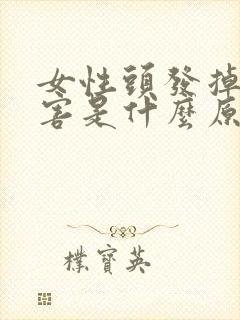 女性頭發掉
害是什麼原
樸寶英